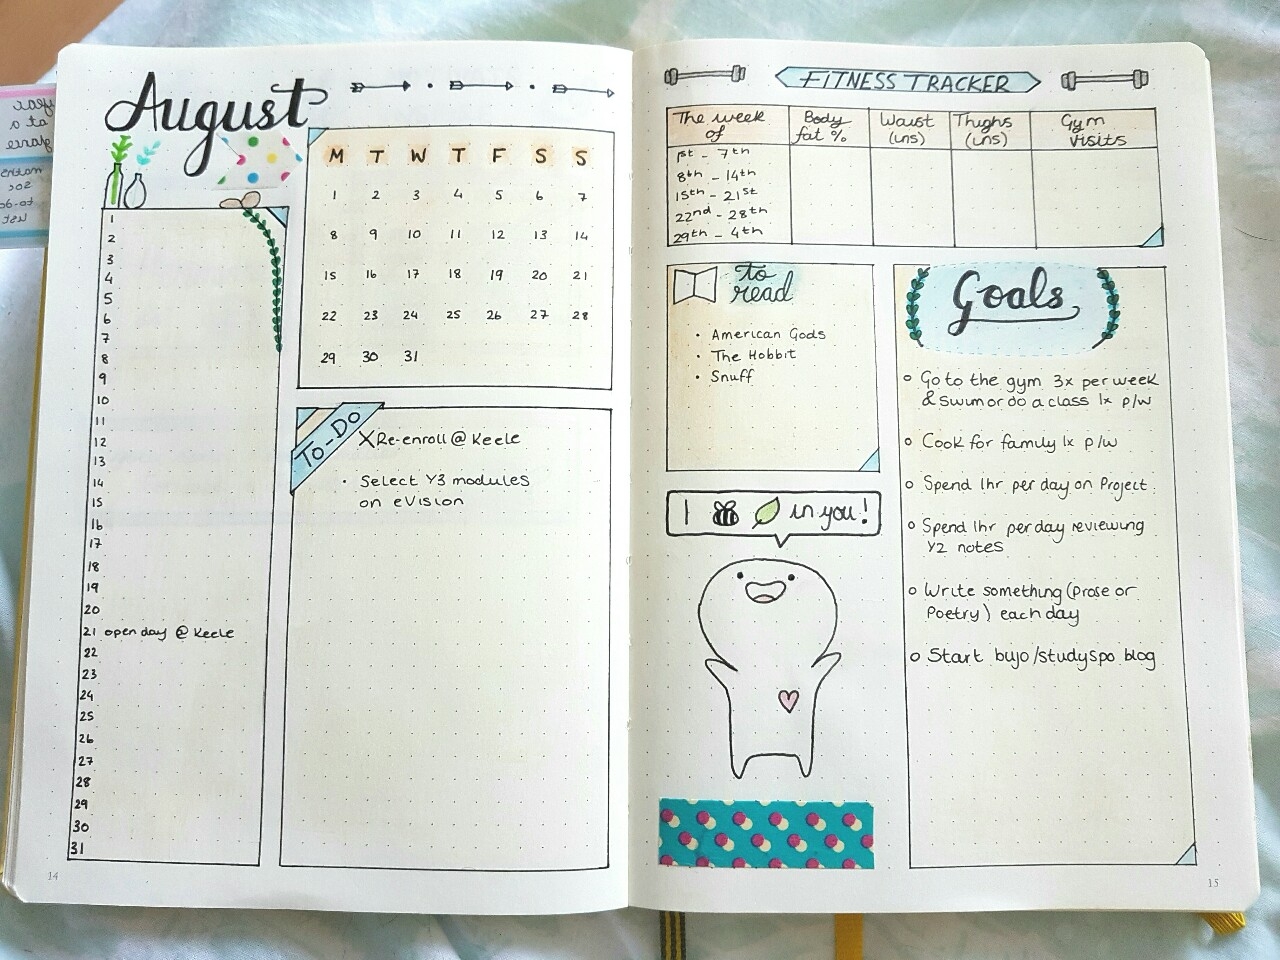 August
M T W T F S S
1 2 3 4 5 6 7
8 9 10 11 12 13 14
15 16 17 18 19 20 21
22 23 24 25 26 27 28
29 30 31
1
2
3
4
5
6
7
8
9
10
11
12
13
14
15
16
17
18
19
20
21 open day @ Keele
22
23
24
25
26
27
28
29
30
31
TO-DO
X Re-enroll @ Keele
• Select Y3 modules
on eVision
14
FITNESS TRACKER
The week of
Body fat %
Waist (ins)
Thighs (ins)
Gym Visits
1st - 7th
8th - 14th
15th - 21st
22nd - 28th
29th - 4th
to
read
• American Gods
• The Hobbit
• Snuff
I in you!
Goals
Go to the gym 3x per week
& swim or do a class 1x p/w
Cook for family 1x p/w
Spend 1hr per day on Project.
Spend 1hr per day reviewing
Y2 notes
Write something (Prose or
Poetry) each day
Start bujo/studyspo blog
15